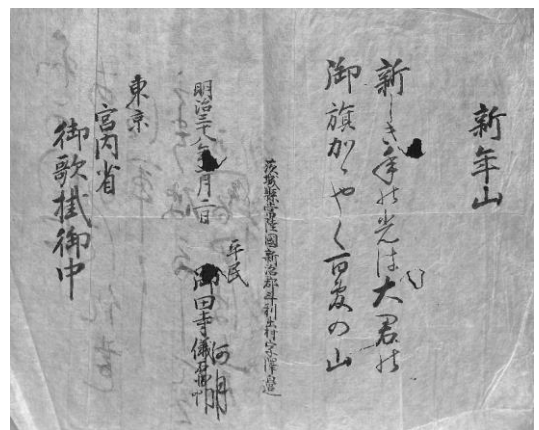 新年山
新しき年の光は大君の
御旗かゝやく の山
茨城縣常陸國新治郡斗利出村字澤邊
明治三十八年 月二日
平民
東京
宮内省
御歌掛御中